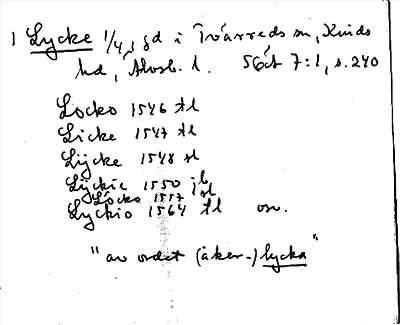 1 Lycke 1/4, gd i Tvärreds sn, Kinds
hd, Älvsb. l. SGÄt 7:1, s. 240
Locko 1546 tl
Licke 1547 tl
Lijcke 1548 sl
Lÿckie 1550 jb
Löcko 1557 sl
Lyckio 1564 tl osv.
"av ordet (åker-) lycka"